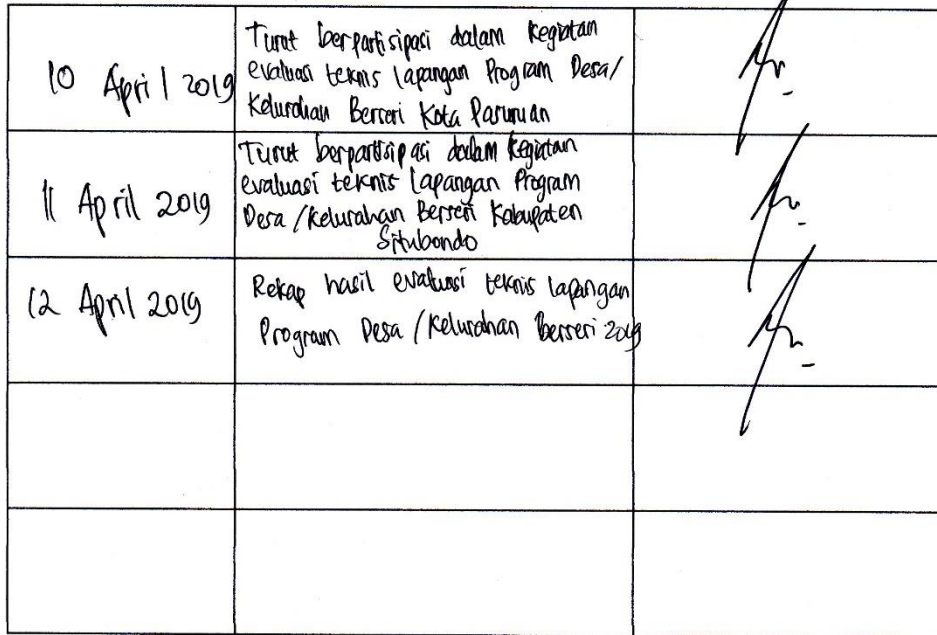 10 April 2019
Turut berpartisipasi dalam kegiatan
evaluasi teknis lapangan Program Desa/
Kelurahan Berseri Kota Pasuruan
11 April 2019
Turut berpartisipasi dalam kegiatan
evaluasi teknis lapangan Program
Desa/Kelurahan Berseri Kabupaten
Situbondo
12 April 2019
Rekap hasil evaluasi teknis lapangan
Program Desa/Kelurahan Berseri 2019